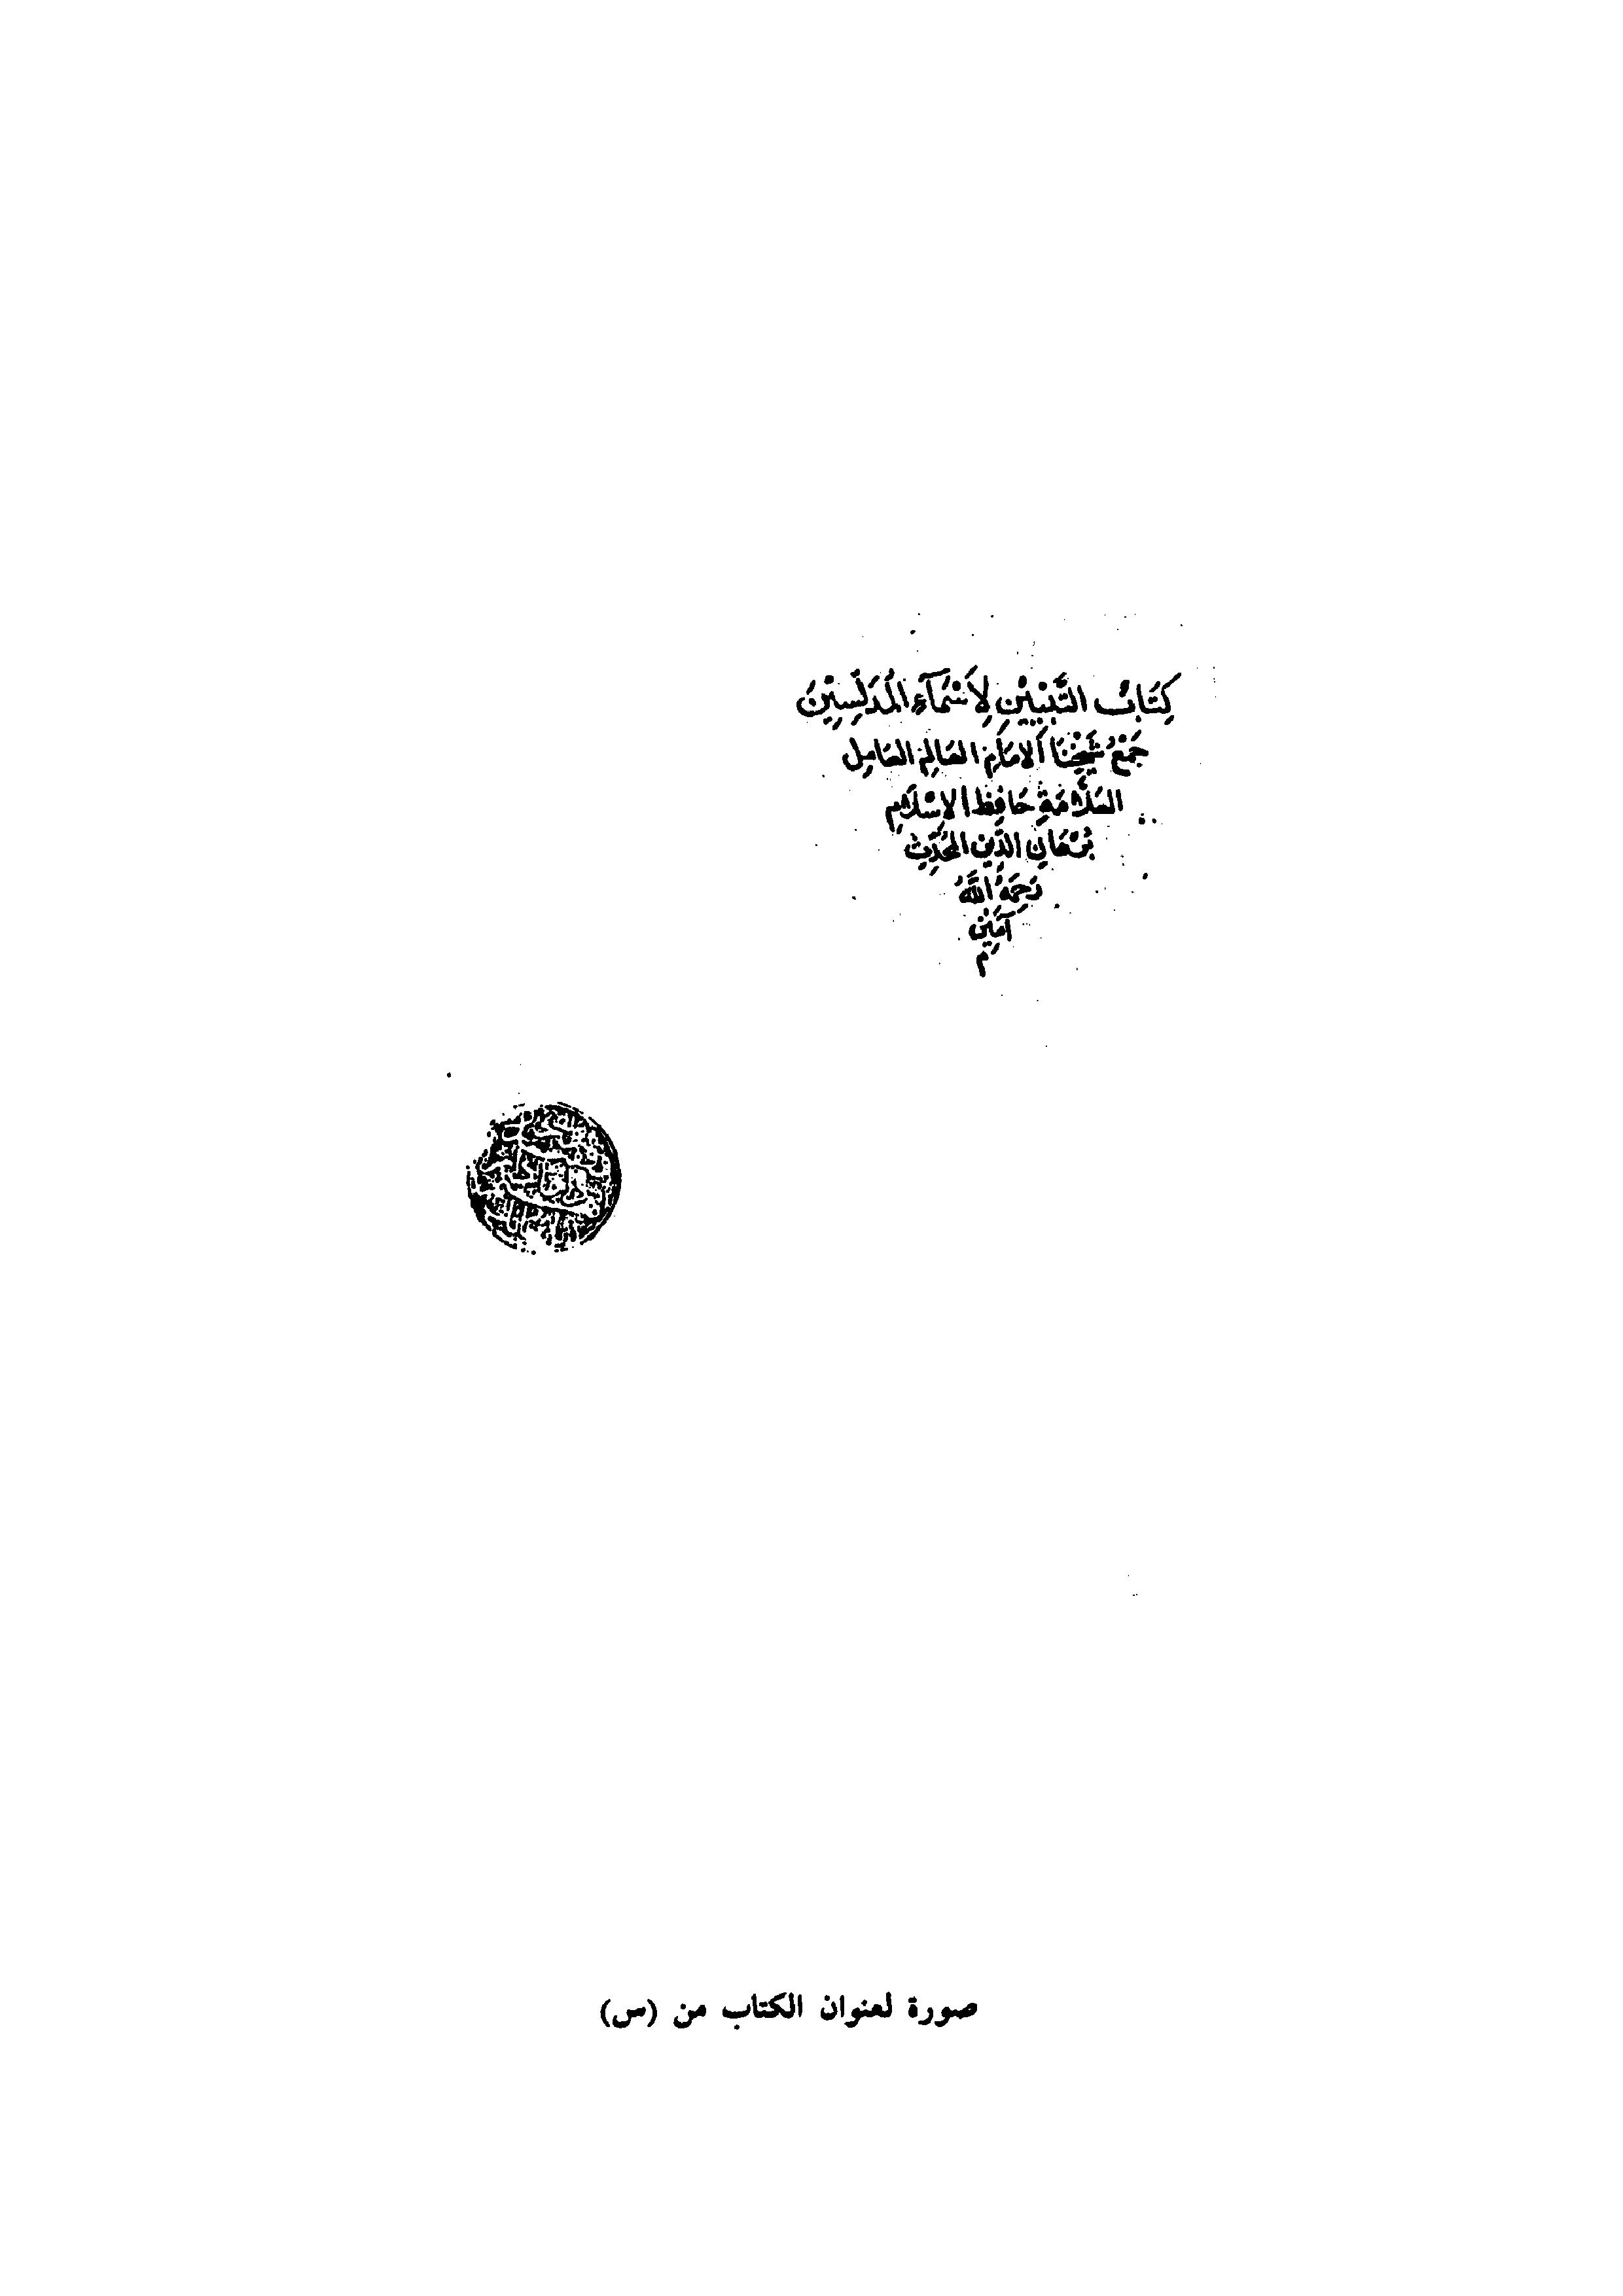 كِتَابُ التَّبْيِينِ لِأَسْمَآءِ الْمُدَلِّسِينَ
جَمْعُ شَيْخِنَا الْإِمَامِ العَالِمِ العَامِلِ
العَلَّامَةِ حَافِظِ الْإِسْلَامِ
بُرْهَانِ الدِّينِ الْمُحَدِّثِ
رَحِمَهُ اللَّهُ
آمِين
م
صورة لعنوان الكتاب من (س)